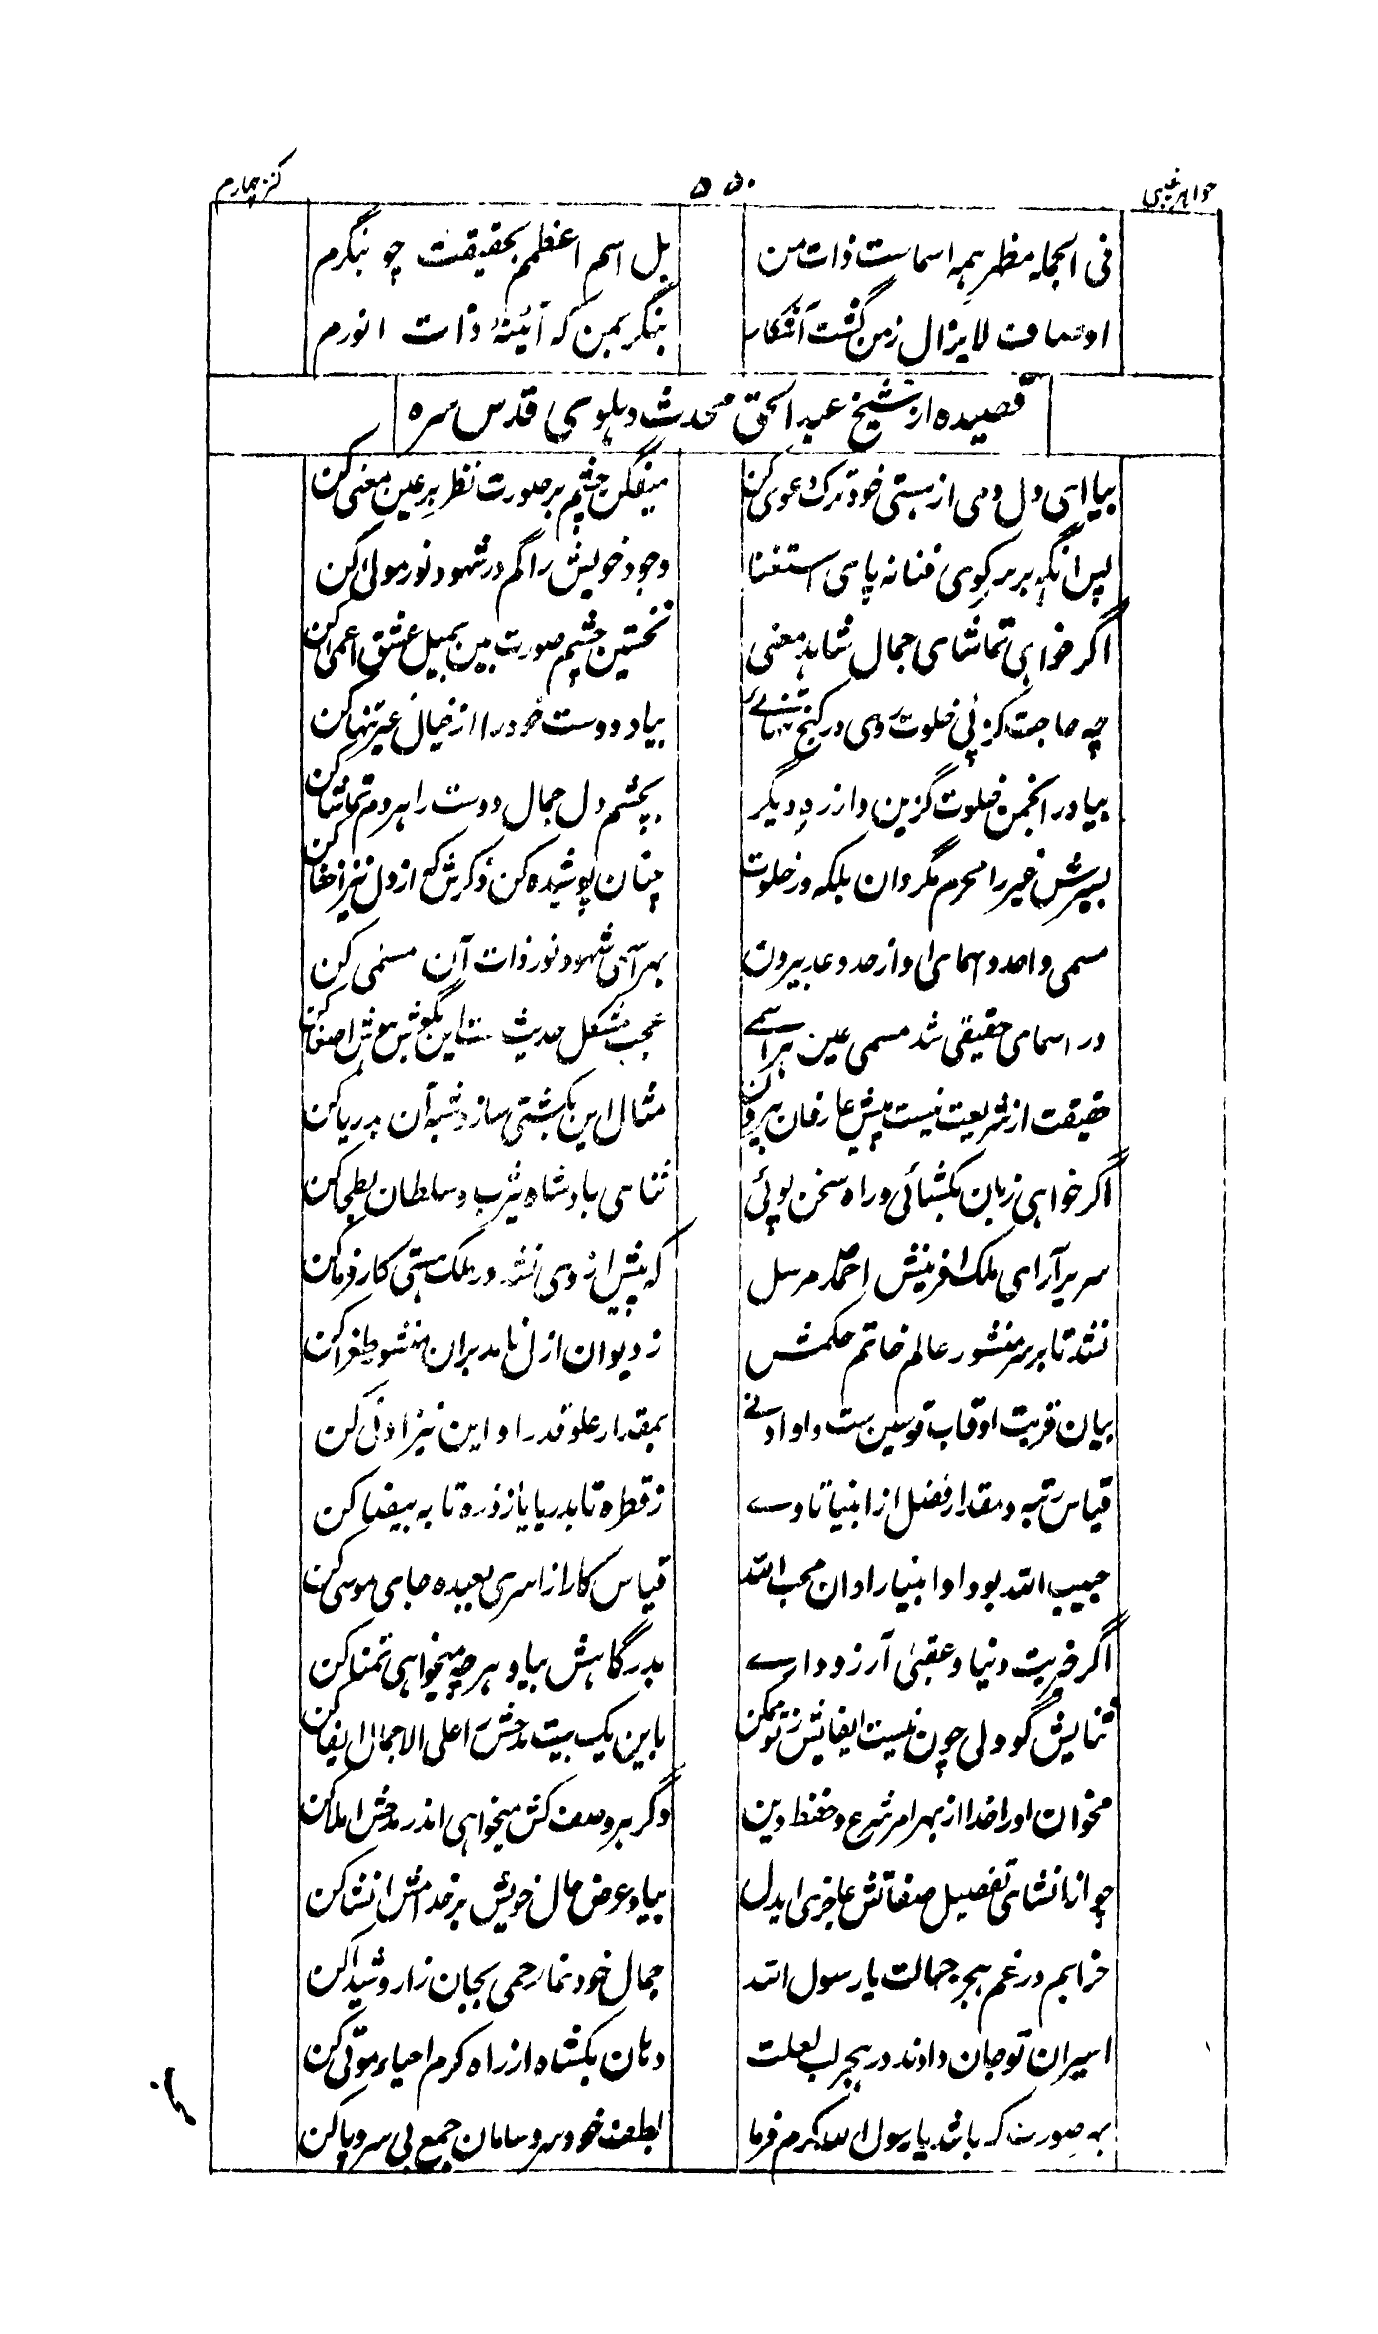 جواہر غیبی ۵۵۰ کنز چہارم
فی الجملہ مظہر ہمہ اسماست ذات من بل اسم اعظمم بحقیقت چو بنگرم
اوصاف لا یزال زمن گشت آشکار بنگر بمن کہ آئینۂ ذات انورم
قصیدہ از شیخ عبد الحق محدث دہلوی قدس سرہ
بیا ای دل دمی از ہستی خود ترک دعوی کن میفکن چشم بر صورت نظر بر عین معنی کن
پس آنگہ بر سر کوی فنا نہ پای استغنا وجود خویش را گم در شہود نور مولی کن
اگر خواہی تماشای جمال شاہد معنی نخستین چشم صورت بین بمیل عشق اعمی کن
چہ حاجت کز پی خلوت روی در کنج تنہائے بیاد دوست خود را از خیال غیر تنہا کن
بیا در انجمن خلوت گزین و از رہ دیگر بچشم دل جمال دوست را ہر دم تماشا کن
بسرش غیر را محرم مگردان بلکہ در خلوت چنان پوشیدہ کن ذکرش کہ از دل نیز اخفا کن
مسمی واحد و اسمای او از حد و عد بیرون بہر اسمی شہود نور ذات آن مسمی کن
در اسمای حقیقی شد مسمی عین ہر اسمے عجب مشکل حدیث ست این بگوش ہوش اصغا کن
حقیقت از شریعت نیست پیش عارفان بیرون مثال این بکشتی ساز و تشبیہ آن بدریا کن
اگر خواہی زبان بکشائی و راہ سخن پوئی ثنای بادشاہ یثرب و سلطان بطحا کن
سریر آرای ملک آفرینش احمد مرسل کہ پیش از وی نشد در ملک ہستی کار فرما کن
نشد تا بر سر منشور عالم خاتم حکمش ز دیوان ازل نامد بران منشور طغرا کن
بیان قربت او قاب قوسین ست و او ادنے بمقدار علو قدر او این نیز ادنی کن
قیاس رتبہ و مقدار فضل از انبیا تا وے ز قطرہ تا بدریا یا ز ذرہ تا بہ بیضا کن
حبیب اللہ بود او انبیا را دان محب اللہ قیاس کار از اسری بعبدہ جای موسی کن
اگر خیریت دنیا و عقبیٰ آرزو دارے بدرگاہش بیا و ہر چہ میخواہی تمنا کن
ثنایش گو ولی چون نیست ایفایش ز تو ممکن باین یک بیت مدحش را علی الاجمال ایفا کن
مخوان او را خدا از بہر امر شرع و حفظ دین دگر ہر وصف کش میخواہی اندر مدحش املا کن
چو از انشای تفصیل صفاتش عاجزی ایدل بیا و عرض حال خویش بر خدامش انشا کن
خرابم در غم ہجر جمالت یا رسول اللہ جمال خود نما رحمی بجان زار و شیدا کن
اسیران تو جان دادند در ہجر لب لعلت دہان بکشا و از راہ کرم احیاء موتی کن
بہر صورت کہ باشد یا رسول اللہ کرم فرما بلطف خود سر و سامان جمع بی سر و پا کن